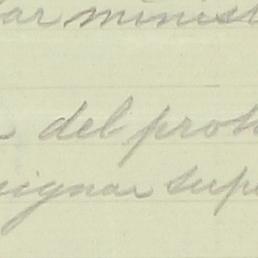 lar minist
del prot
signar supe